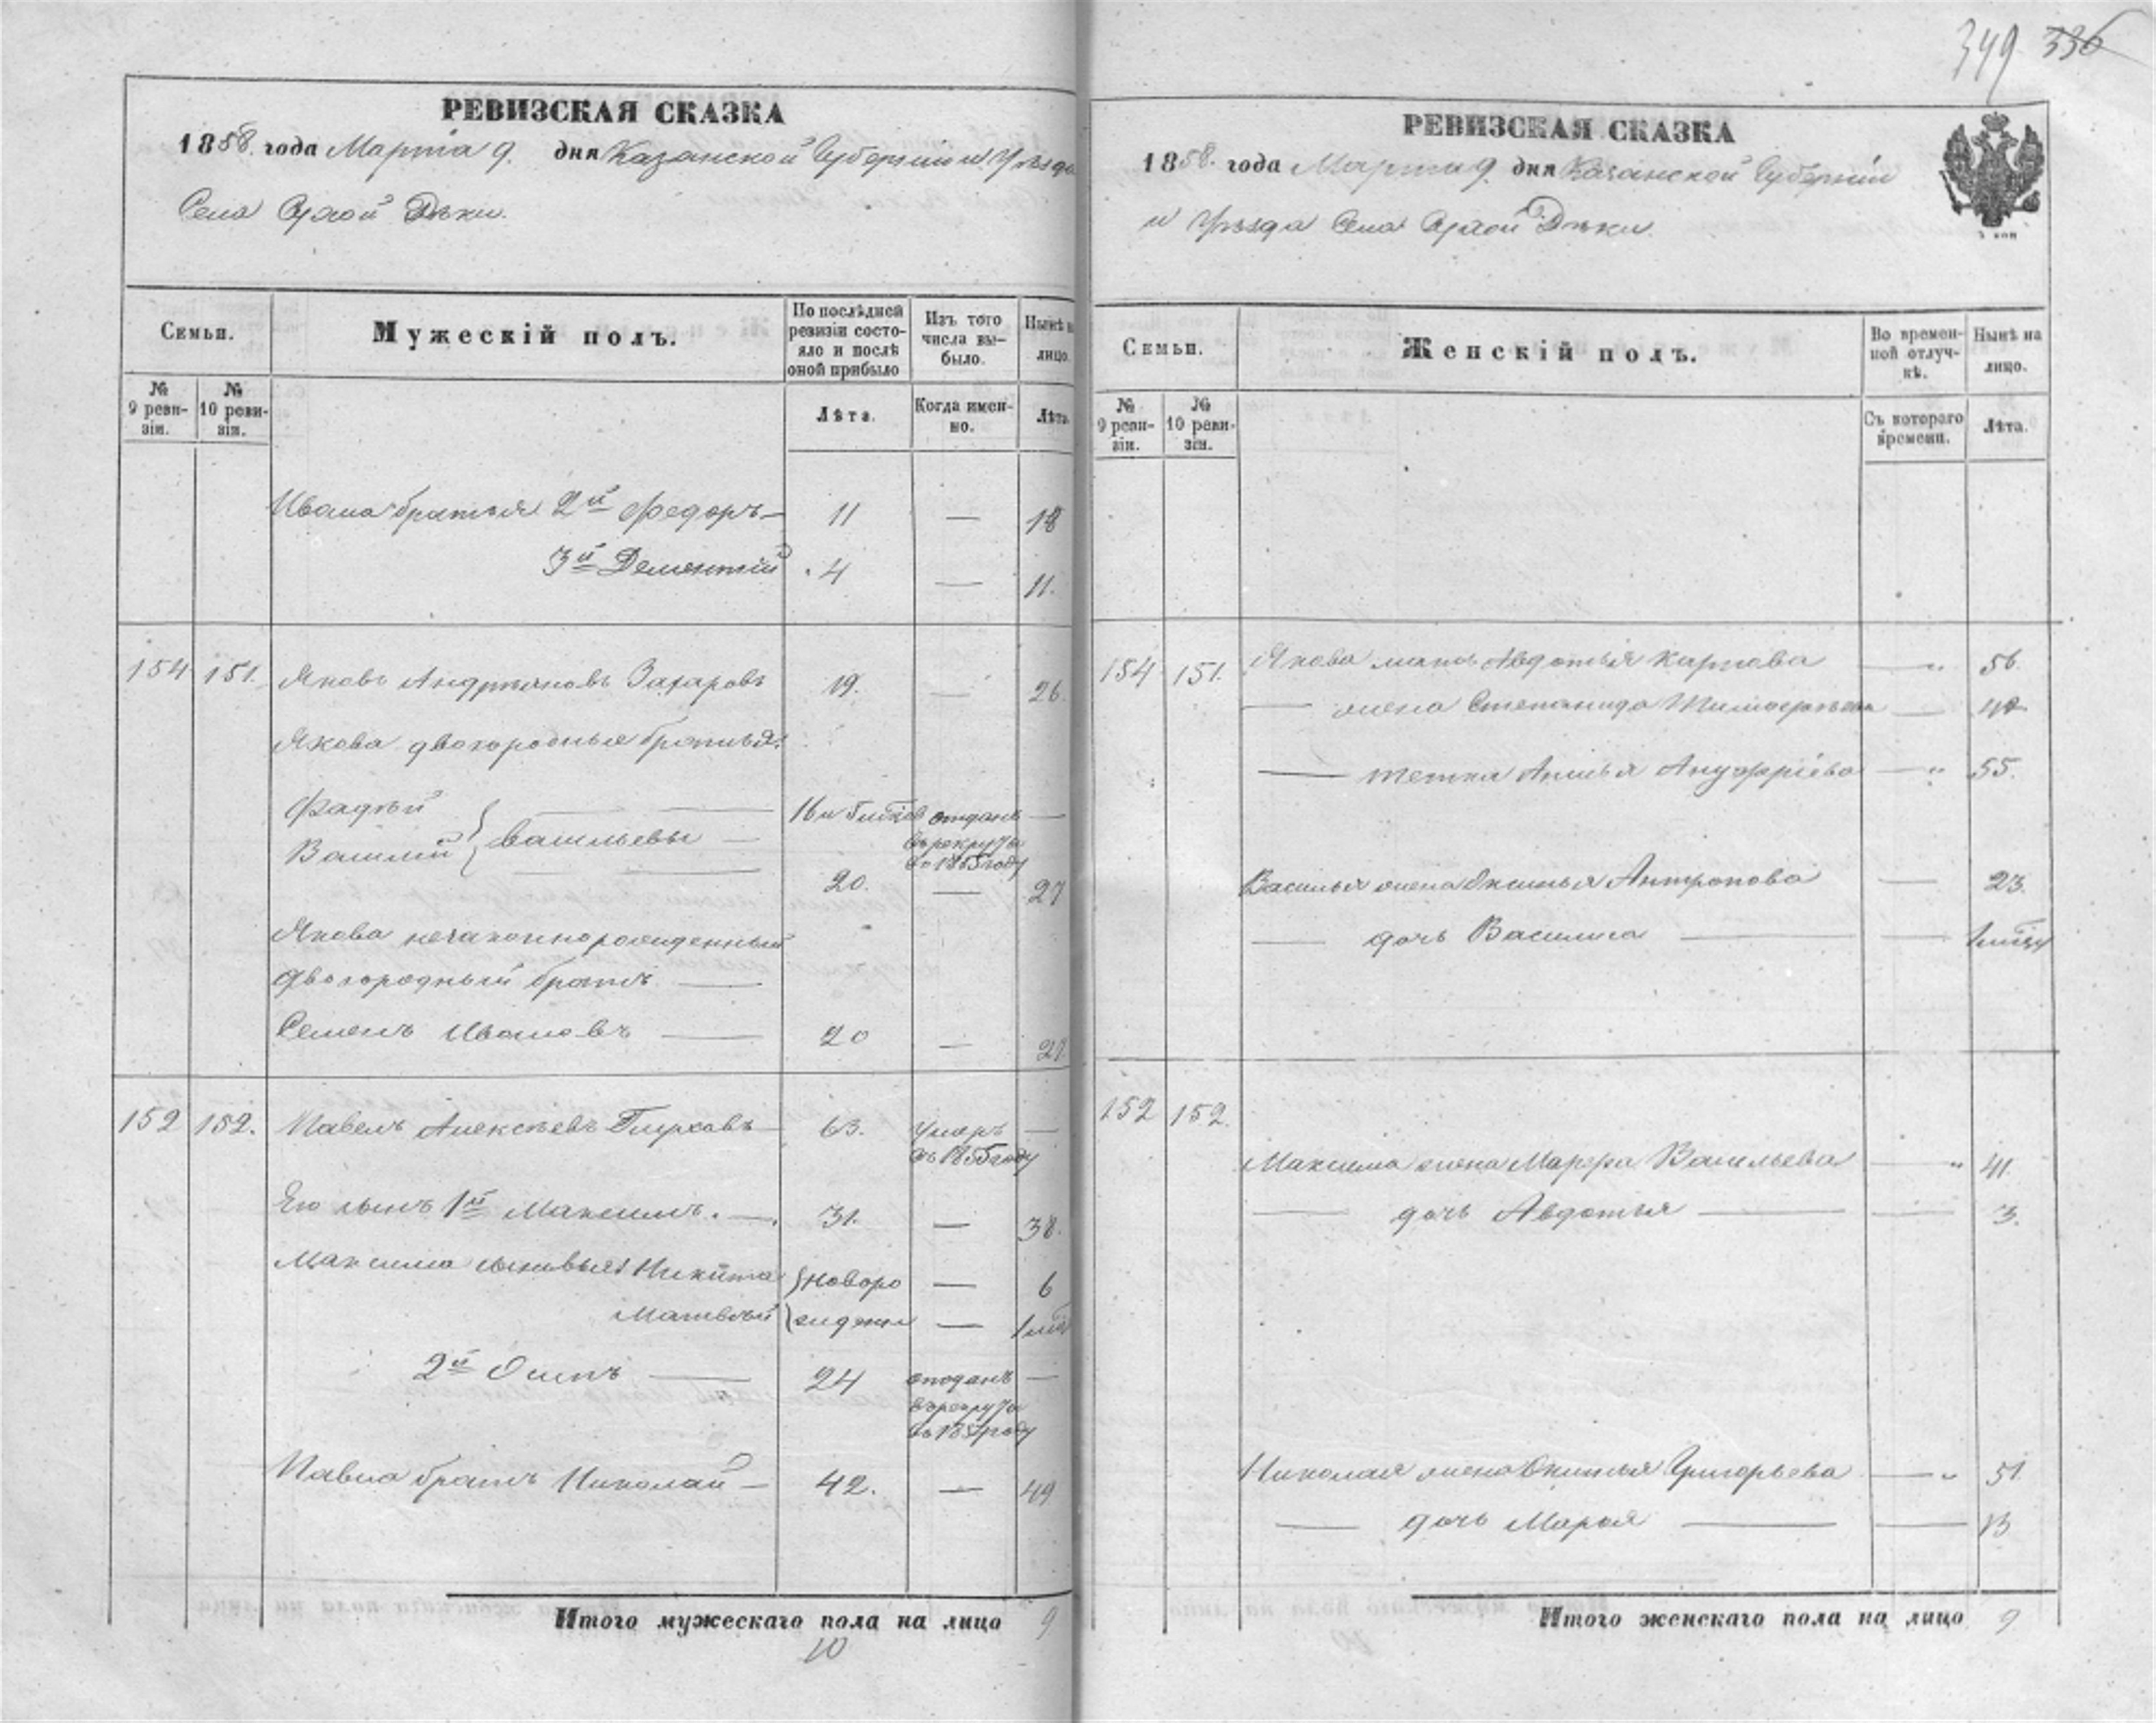 349 336
РЕВИЗСКАЯ СКАЗКА
1858. года Марта 9. дня Казанской Губерніи и Уѣзда
Села Сухой Рѣки.
Семьи.
Мужескій полъ.
По послѣдней ревизіи состояло и послѣ оной прибыло
Изъ того числа выбыло.
Нынѣ на лицо.
№ 9 ревизіи.
№ 10 ревизіи.
Лѣта.
Когда именно.
Лѣта.
Ивана братья 2й Федоръ — 11 — 18
3й Дементій 4 — 11.
154 151. Яковъ Андреяновъ Захаровъ 19. — 26.
Якова двоюродные братья:
Фадѣй } Васильевы — 16 отданъ —
въ рекруты
въ 1855 году
Василій 20. — 27
Якова незаконнорожденный
двоюродный братъ —
Семенъ Ивановъ — 20 — 27
152 152. Павелъ Алексѣевъ — 63. умеръ —
въ 1855 году
Его сынъ 1й Максимъ. — 31. — 38.
Максима сыновья: Никита } новоро — 6
Матвѣй } жденны —
2й Осипъ — 24 отданъ —
въ рекруты
Павла братъ Николай — 42. — 49
Итого мужескаго пола на лицо 9
10
РЕВИЗСКАЯ СКАЗКА
1858. года Марта 9. дня Казанской Губерніи
и Уѣзда Села Сухой Рѣки.
Семьи.
Женскій полъ.
Во временной отлучкѣ.
Нынѣ на лицо.
№ 9 ревизіи.
№ 10 ревизіи.
Съ котораго времени.
Лѣта.
154 151. Якова мать Авдотья Карпова — 56.
— жена Степанида Тимофѣева —
— тетка Анисья Ануфріева — 55.
Василья жена Аксинья Антропова — 23.
— дочь Василиса — —
152 152.
Максима жена Марфа Васильева — 41.
— дочь Авдотья — — 3.
Николая жена Аксинья Григорьева — 51.
— дочь Марья — — 13
Итого женскаго пола на лицо 9